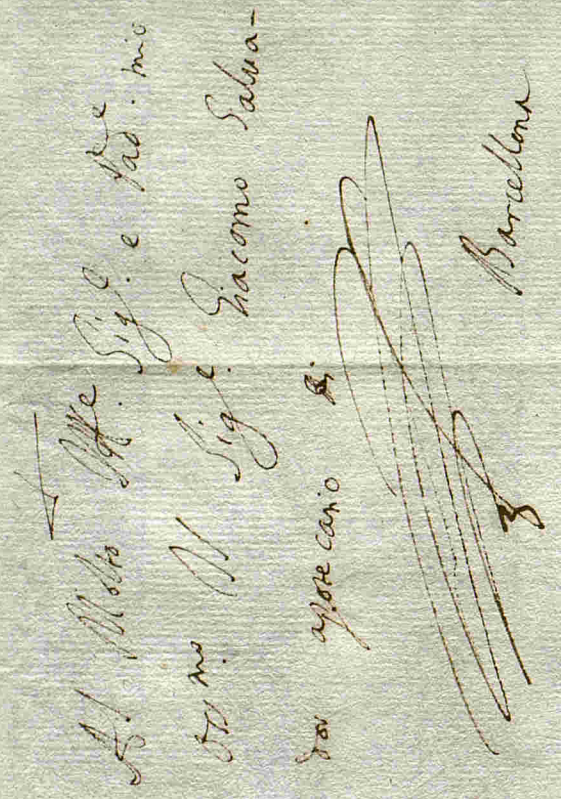 Al Molto Ill.e Sig.e e Pad.ne mio
oss.mo Il Sig.e Giacomo Salva-
dor apotecario di
Barcellona